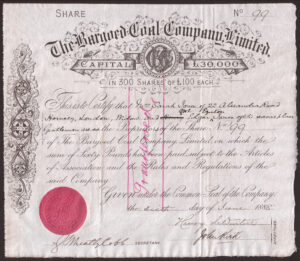 SHARE
No 99
The Bargoed Coal Company, Limited.
CAPITAL £30,000
IN 300 SHARES OF £100 EACH.
This is to Certify that Mrs Sarah Jones of 22 Alexandra
Hornsey, London, Widow and Edgar Jones of the same place
gentleman as the Proprietors of the Share No 99
of The Bargoed Coal Company Limited on which the
sum of Sixty Pounds have been paid, subject to the Articles
of Association and the Rules and Regulations of the
said Company.
Given under the Common Seal of the Company,
the sixth day of June 188
Transferred
SECRETARY.
John